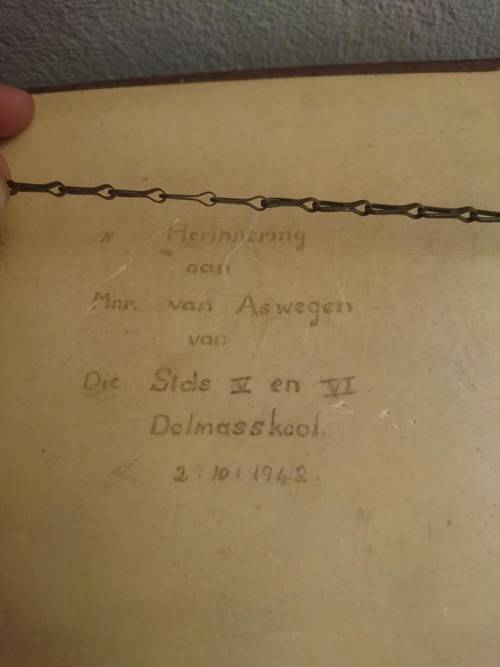 'N Herinnering
aan
Mnr. van Aswegen
van
Die Stds V en VI
Delmasskool.
2:10:1942.